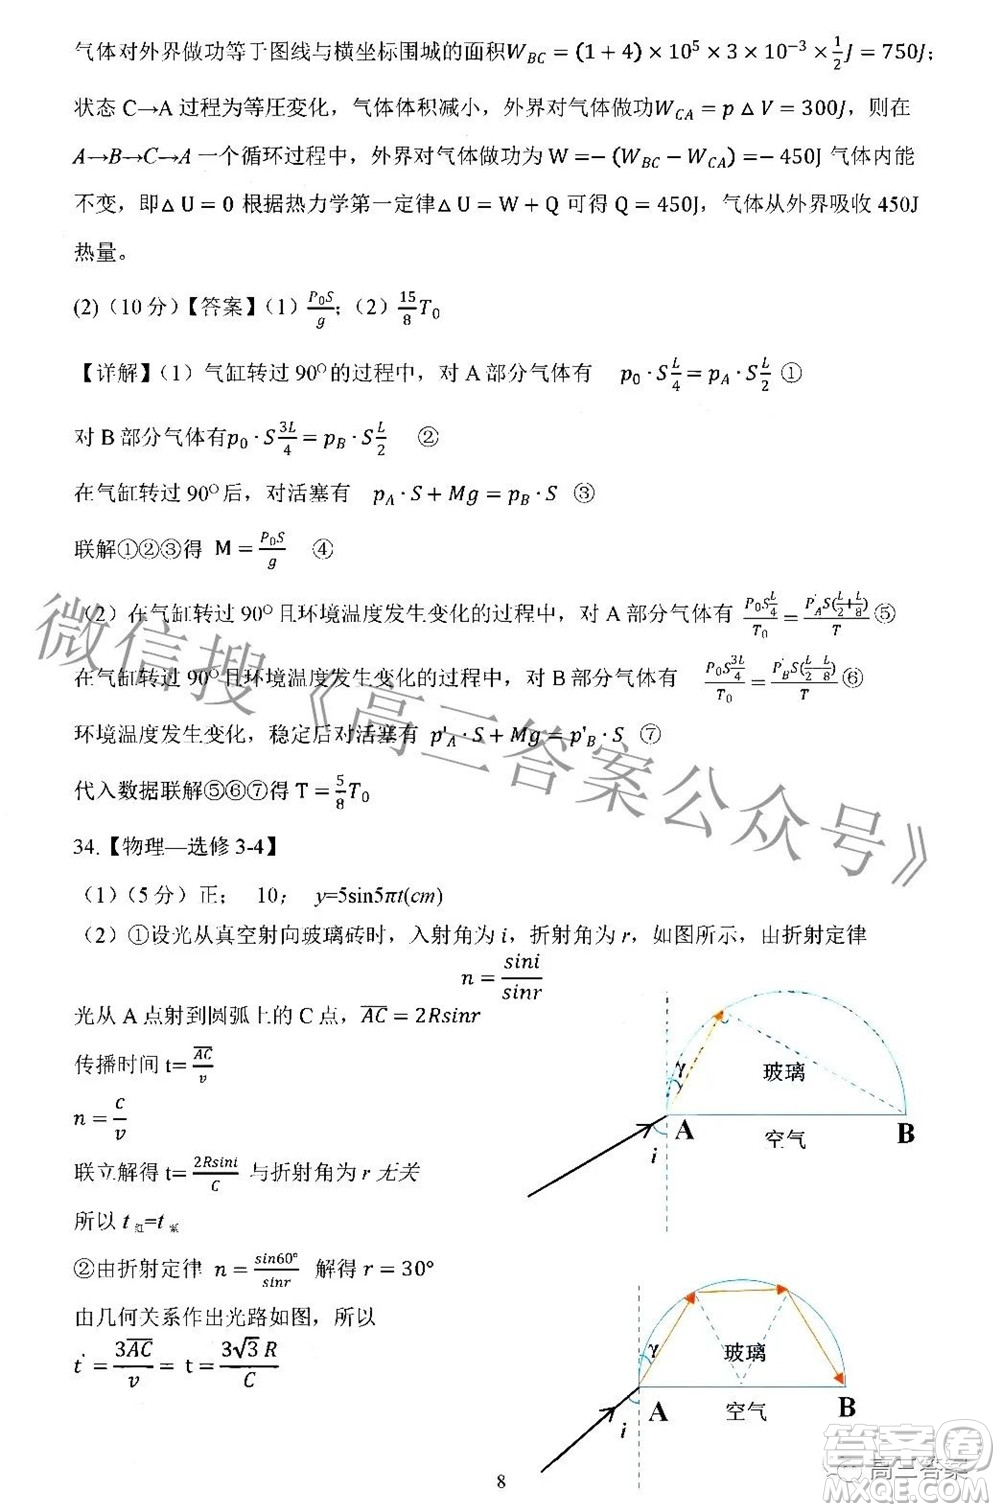 气体对外界做功等于图线与横坐标围城的面积W_BC = (1 + 4) × 10⁵ × 3 × 10⁻³ × 1/2 J = 750J；
状态 C→A 过程为等压变化，气体体积减小，外界对气体做功W_CA = p △ V = 300J，则在
A→B→C→A 一个循环过程中，外界对气体做功为 W =− (W_BC − W_CA) =− 450J 气体内能
不变，即 △ U = 0 根据热力学第一定律 △ U = W + Q 可得 Q = 450J，气体从外界吸收 450J
热量。
(2)（10 分）【答案】（1）P₀S/g；（2）15/8 T₀
【详解】（1）气缸转过 90°的过程中，对 A 部分气体有 p₀ · S L/4 = p_A · S L/2 ①
对 B 部分气体有p₀ · S 3L/4 = p_B · S L/2 ②
在气缸转过 90°后，对活塞有 p_A · S + Mg = p_B · S ③
联解①②③得 M = P₀S/g ④
（2）在气缸转过 90°且环境温度发生变化的过程中，对 A 部分气体有 P₀S L/4 / T₀ = P'_A S(L/2 + L/8) / T ⑤
在气缸转过 90°且环境温度发生变化的过程中，对 B 部分气体有 P₀S 3L/4 / T₀ = P'_B S(L/2 − L/8) / T ⑥
环境温度发生变化，稳定后对活塞有 p'_A · S + Mg = p'_B · S ⑦
代入数据联解⑤⑥⑦得 T = 5/8 T₀
34.【物理—选修 3-4】
（1）（5 分）正； 10； y=5sin5πt(cm)
（2）①设光从真空射向玻璃砖时，入射角为 i，折射角为 r，如图所示，由折射定律
n = sini/sinr
光从 A 点射到圆弧上的 C 点，AC = 2Rsinr
传播时间 t= AC/v
n = c/v
联立解得 t= 2Rsini/C 与折射角为 r 无关
所以 t 红=t 紫
γ
玻璃
A
空气
B
i
②由折射定律 n = sin60°/sinr 解得 r = 30°
由几何关系作出光路如图，所以
t = 3AC/v = t = 3√3 R/C
γ
玻璃
A
空气
B
i
8
微信搜《高三答案公众号》
高三答案
答案圈
MXQE.COM